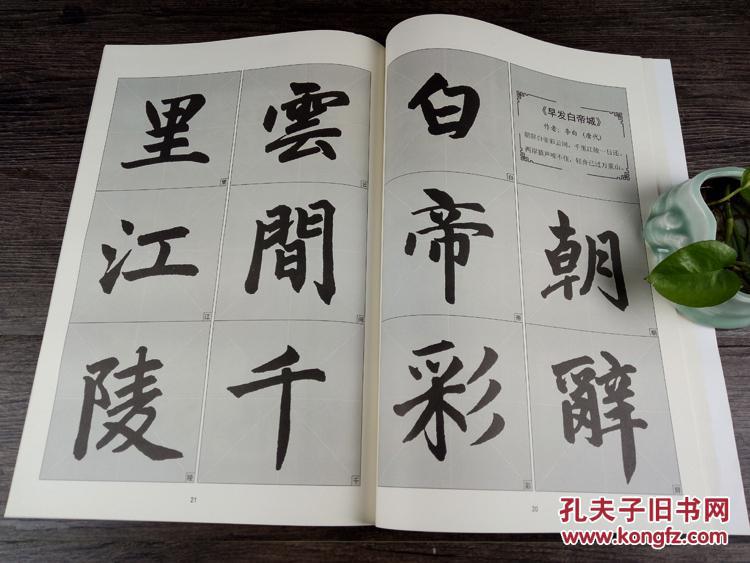 《早发白帝城》
作者：李白（唐代）
朝辞白帝彩云间，千里江陵一日还。
两岸猿声啼不住，轻舟已过万重山。
朝辭
白帝彩
雲間千
里江陵
20
21
孔夫子旧书网
www.kongfz.com